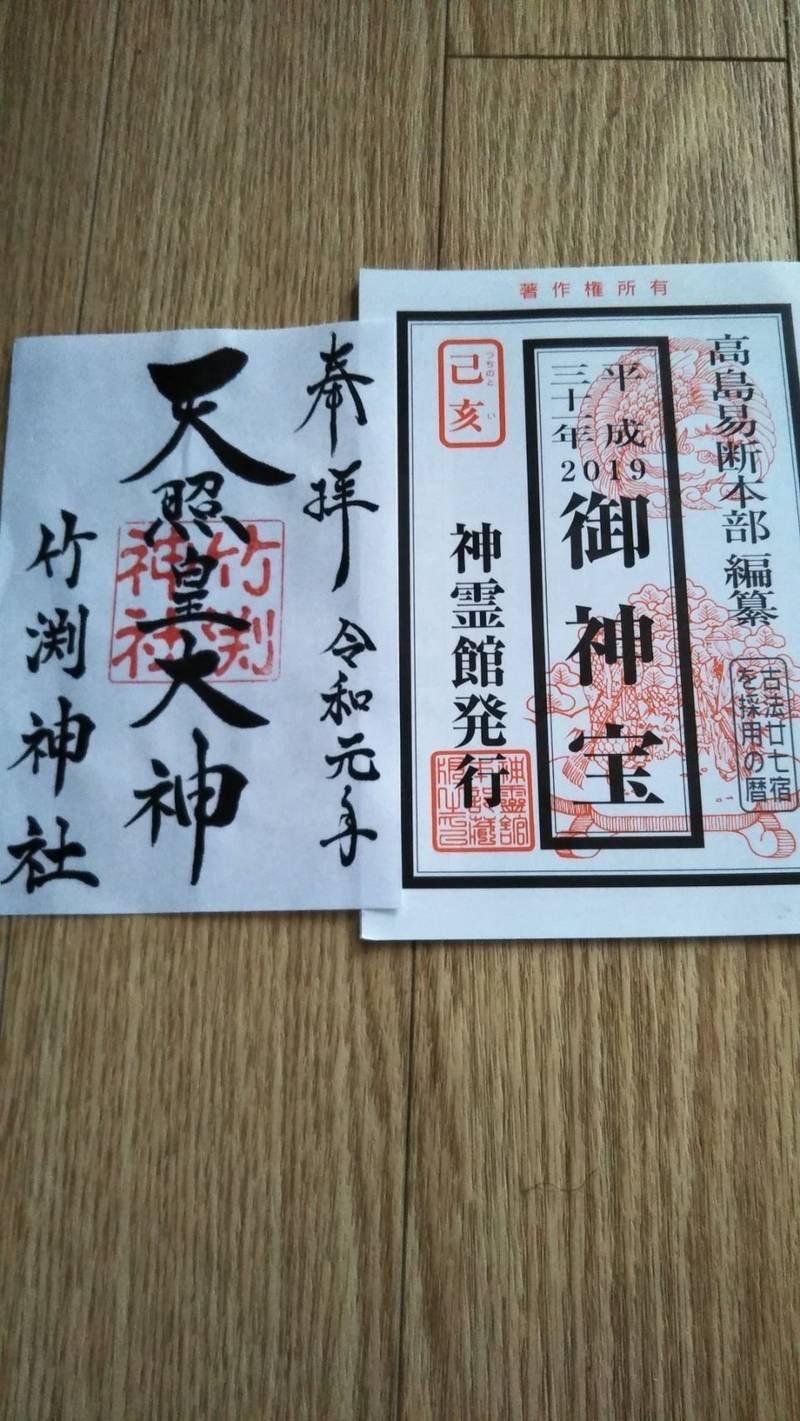 奉拝 令和元年
天照皇大神
竹渕神社
竹渕神社
著作権所有
高島易断本部編纂
古法廿七宿
を採用の暦
平成
三十一年
2019
御神宝
つちのと い
己亥
神霊館発行